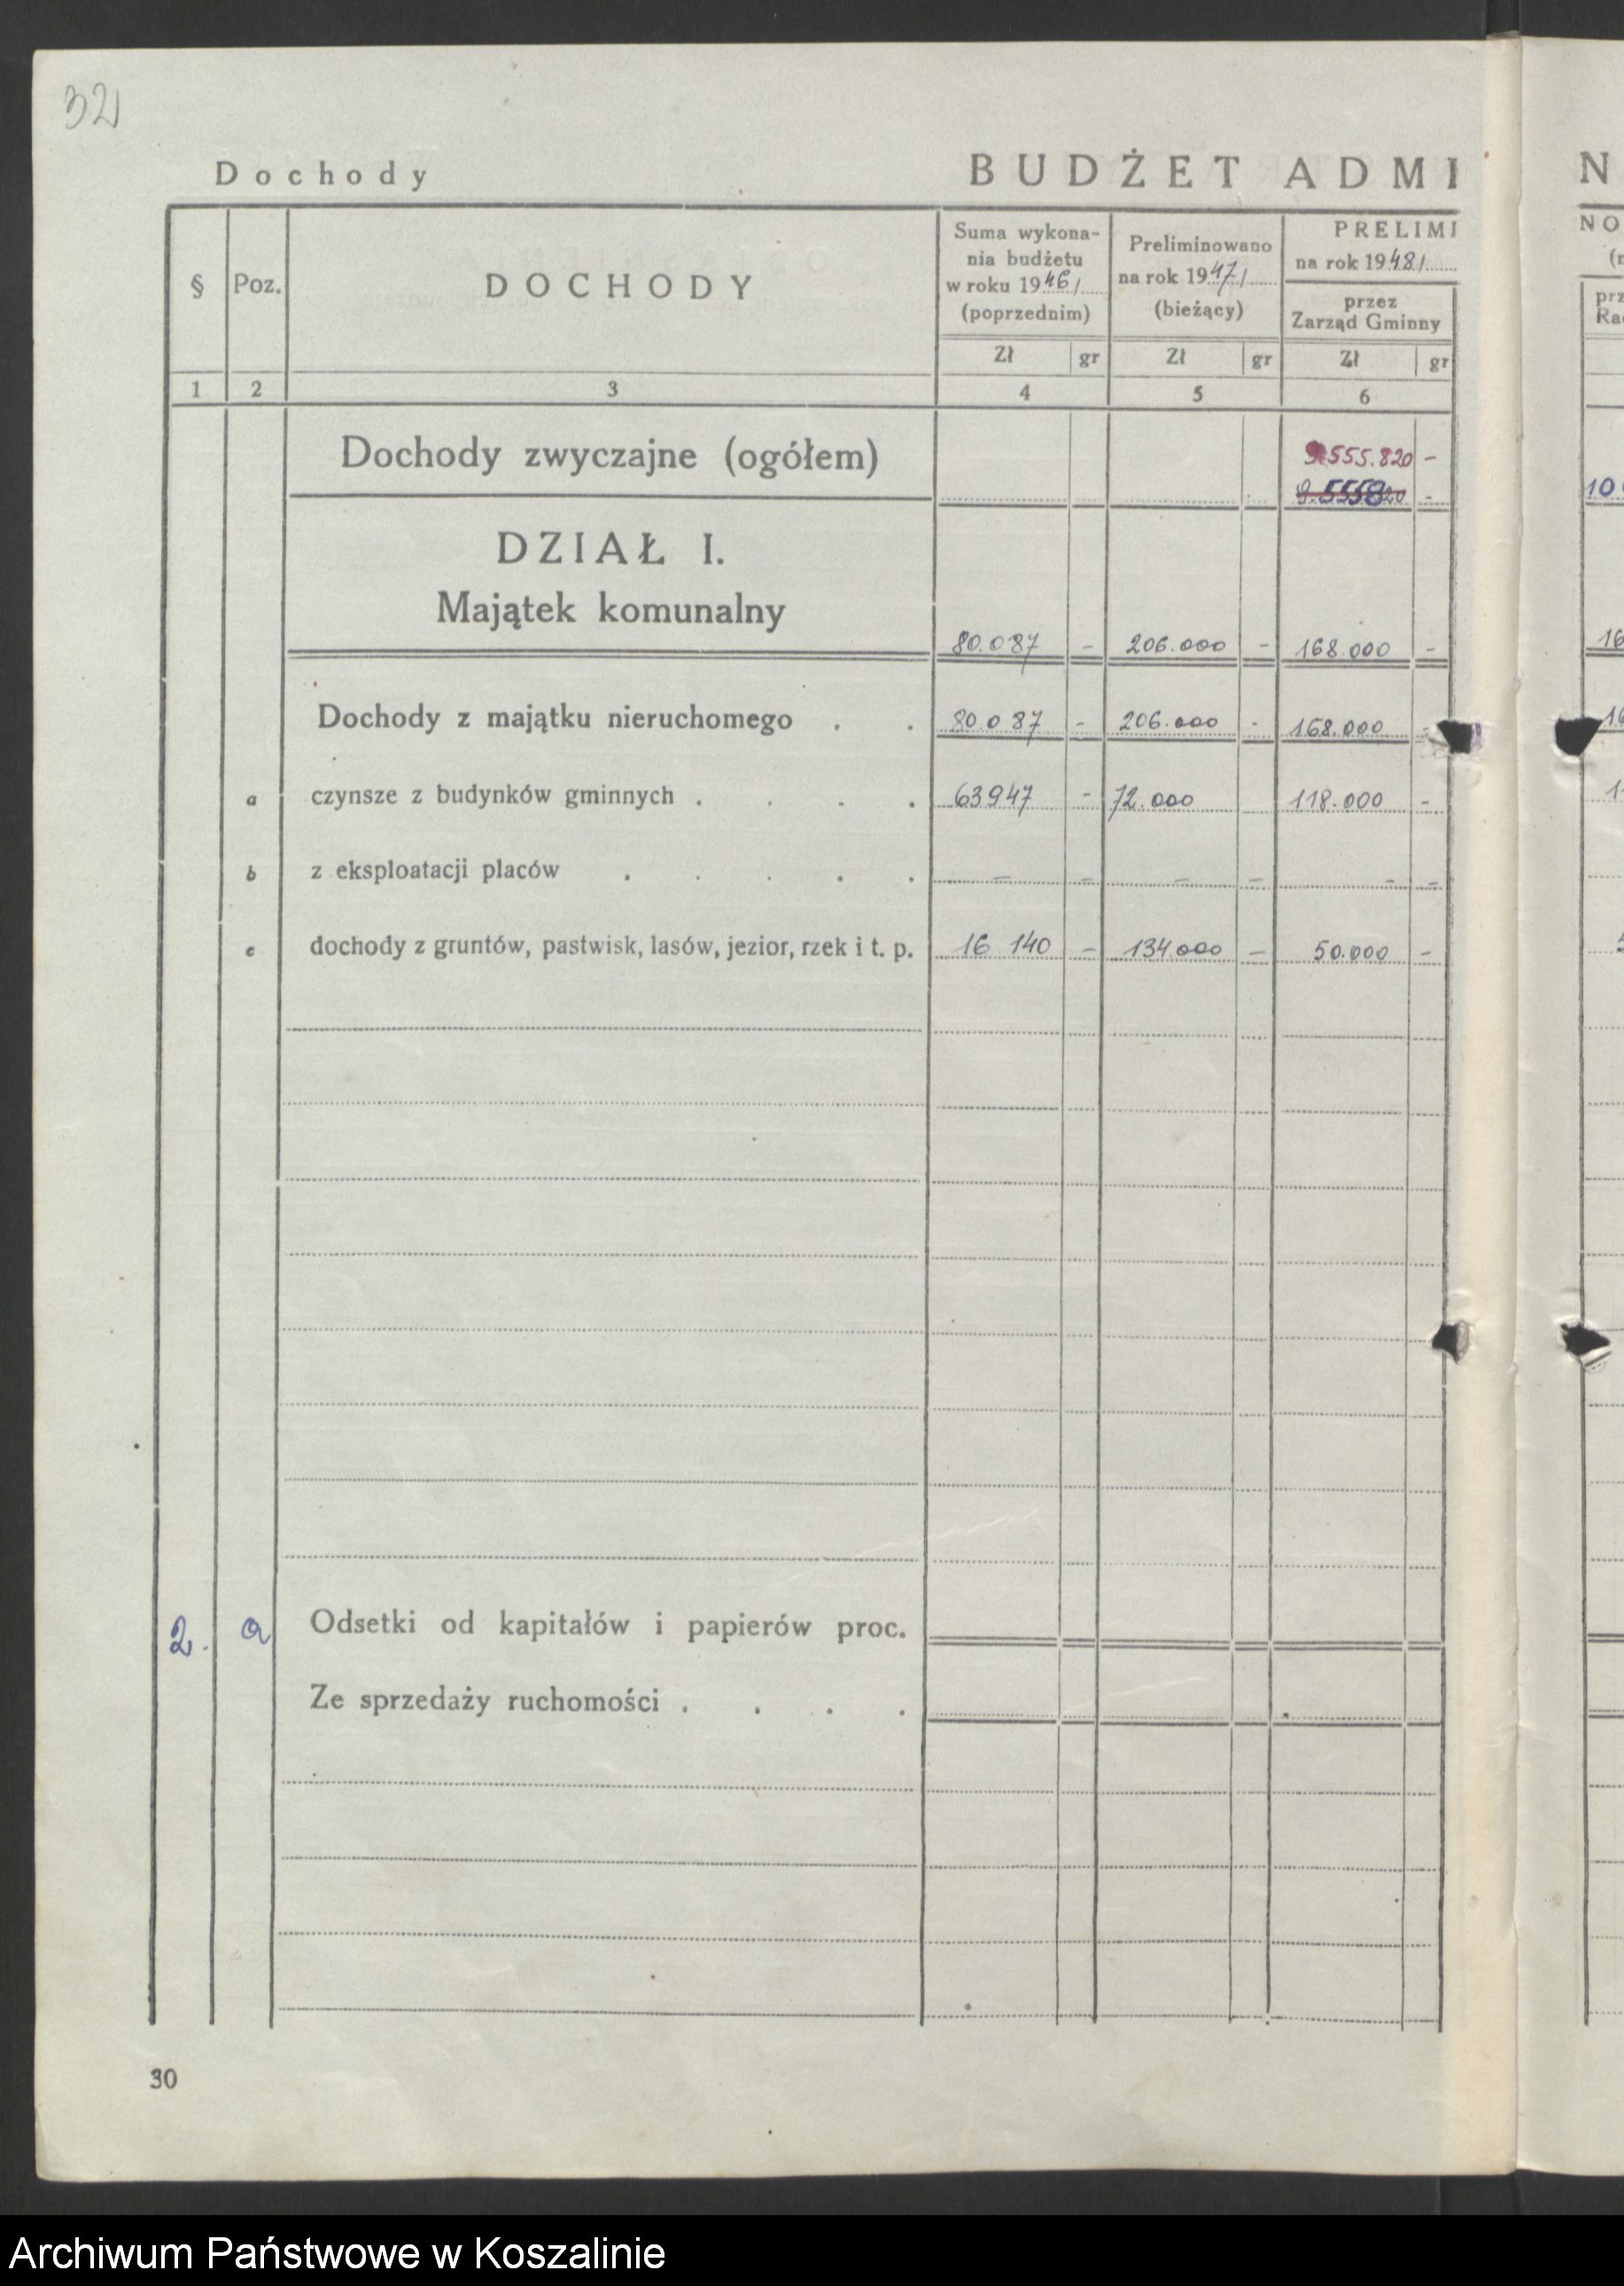 32
Dochody BUDŻET ADMI N
§ Poz. DOCHODY Suma wykona-
nia budżetu
w roku 1946/
(poprzednim) Preliminowano
na rok 1947/
(bieżący) PRELIMI NO
na rok 1948/
przez
Zarząd Gminny
Zł gr Zł gr Zł gr
1 2 3 4 5 6
Dochody zwyczajne (ogółem) 9.555.820 -
9.555820 -
DZIAŁ I.
Majątek komunalny 80.087 - 206.000 - 168.000 -
Dochody z majątku nieruchomego . . 80.087 - 206.000 - 168.000 -
a czynsze z budynków gminnych . . . . 63947 - 72.000 118.000 -
b z eksploatacji placów . . . . . - - - - - -
c dochody z gruntów, pastwisk, lasów, jezior, rzek i t. p. 16 140 - 134.000 - 50.000 -
2. a Odsetki od kapitałów i papierów proc.
Ze sprzedaży ruchomości . . . .
30
Archiwum Państwowe w Koszalinie